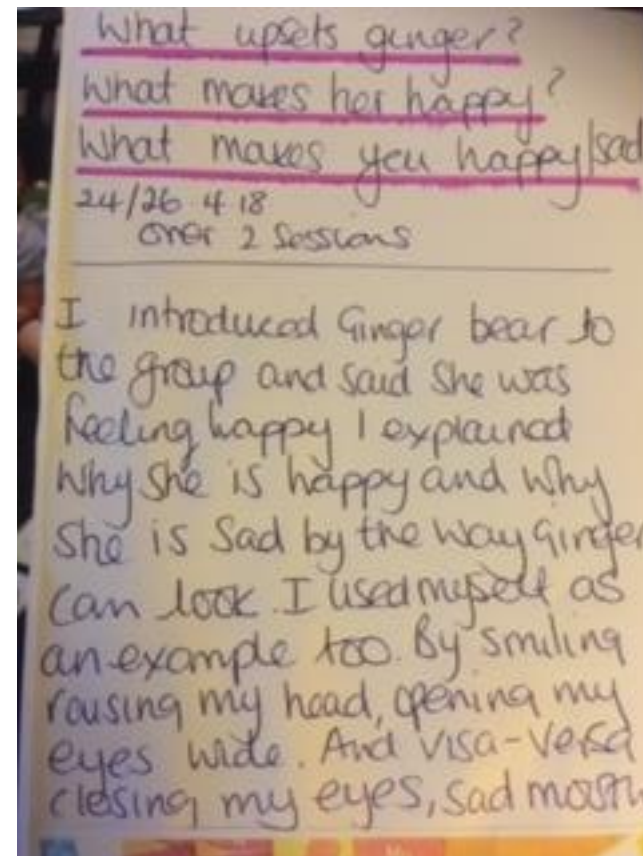 What upsets ginger?
What makes her happy?
What makes you happy/sad
24/26 4 18
over 2 sessions
I introduced Ginger bear to
the group and said she was
feeling happy I explained
why she is happy and why
she is sad by the way Ginger
can look. I used myself as
an example too. By smiling
rausing my head, opening my
eyes wide. And visa-versa
closing my eyes, sad mouth